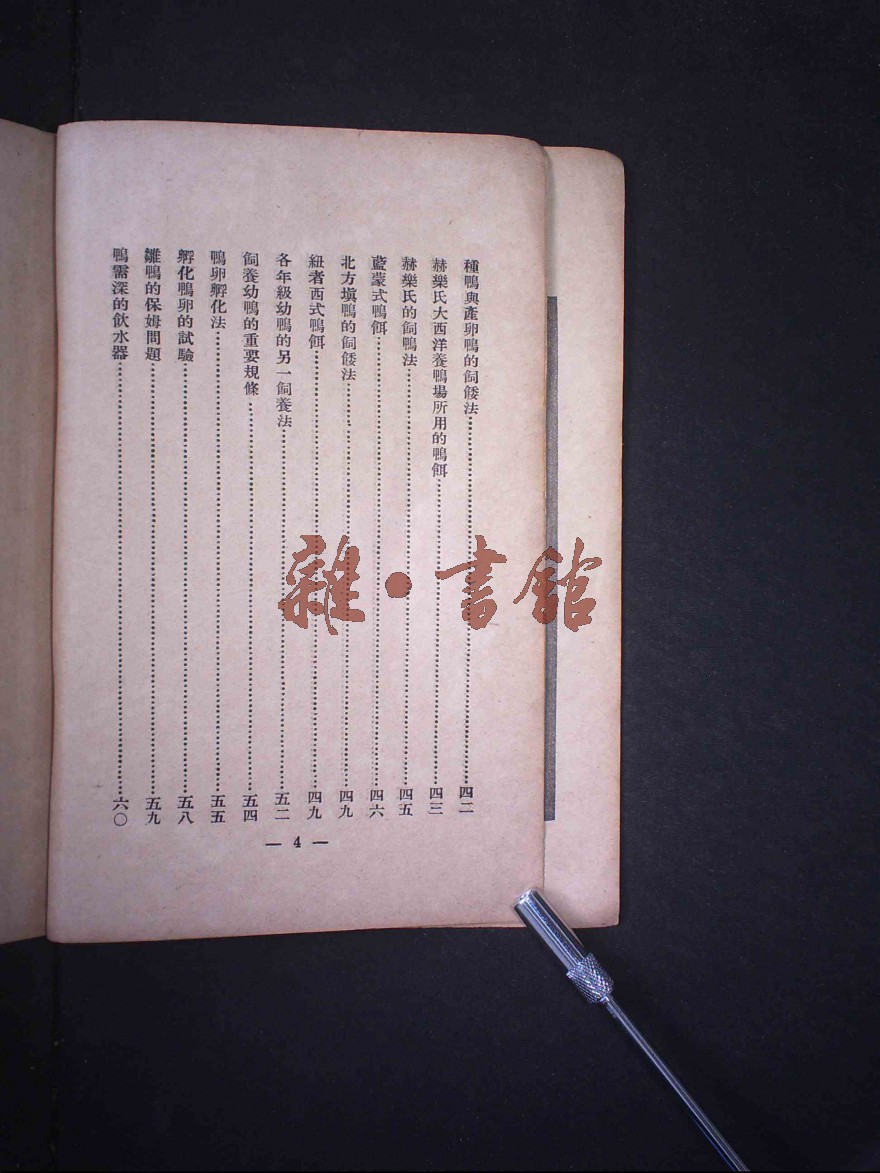 種鴨與產卵鴨的飼餧法……四二
赫樂氏大西洋養鴨場所用的鴨餌……四三
赫樂氏的飼鴨法……四五
藍蒙式鴨餌……四六
北方塡鴨的飼餧法……四九
紐者西式鴨餌……四九
各年級幼鴨的另一飼養法……五二
飼養幼鴨的重要規條……五四
鴨卵孵化法……五五
孵化鴨卵的試驗……五八
雛鴨的保姆問題……五九
鴨需深的飲水器……六〇
— 4 —
雜·書館